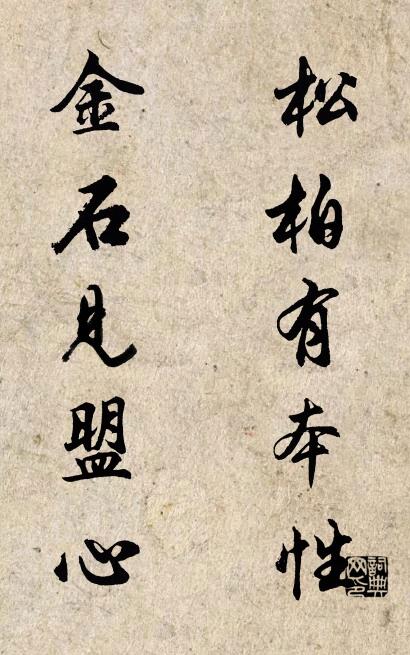 松柏有本性
金石見盟心
詞典网